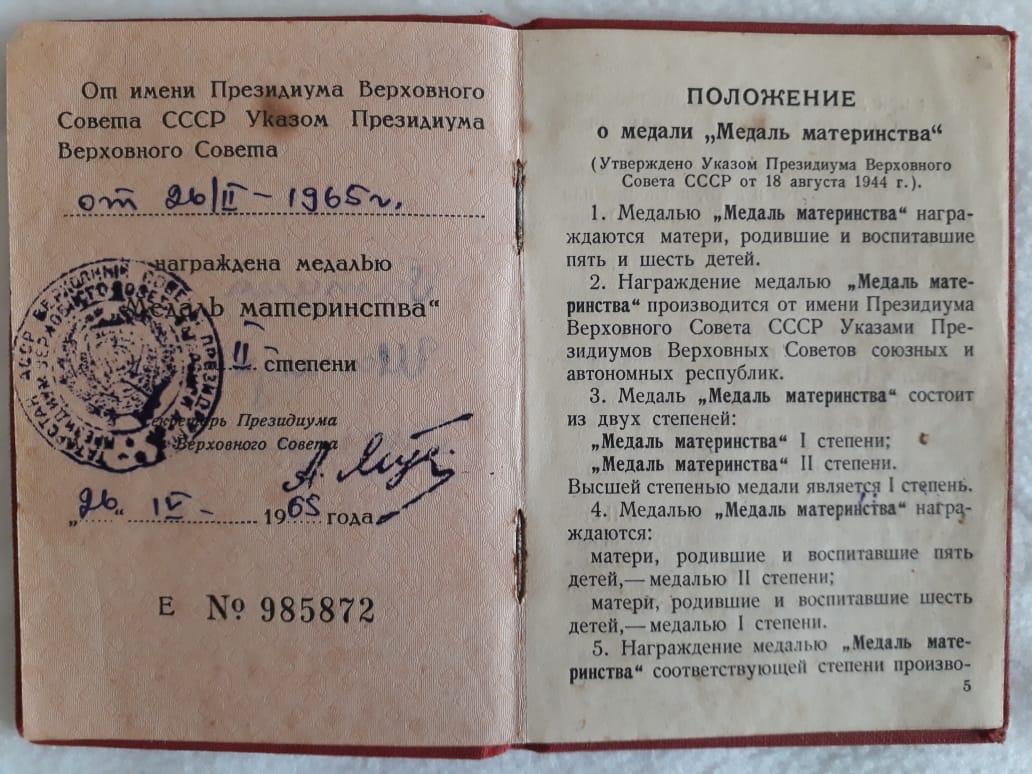 От имени Президиума Верховного
Совета СССР Указом Президиума
Верховного Совета
от 26/II – 1965 г.
награждена медалью
„Медаль материнства“
II степени
Секретарь Президиума
Верховного Совета
„26“ IV - 1965 года
Е № 985872
ПОЛОЖЕНИЕ
о медали „Медаль материнства“
(Утверждено Указом Президиума Верховного
Совета СССР от 18 августа 1944 г.).
1. Медалью „Медаль материнства“ награ-
ждаются матери, родившие и воспитавшие
пять и шесть детей.
2. Награждение медалью „Медаль мате-
ринства“ производится от имени Президиума
Верховного Совета СССР Указами Пре-
зидиумов Верховных Советов союзных и
автономных республик.
3. Медаль „Медаль материнства“ состоит
из двух степеней:
„Медаль материнства“ I степени;
„Медаль материнства“ II степени.
Высшей степенью медали является I степень.
4. Медалью „Медаль материнства“ награ-
ждаются:
матери, родившие и воспитавшие пять
детей,— медалью II степени;
матери, родившие и воспитавшие шесть
детей,— медалью I степени.
5. Награждение медалью „Медаль мате-
ринства“ соответствующей степени произво-
5